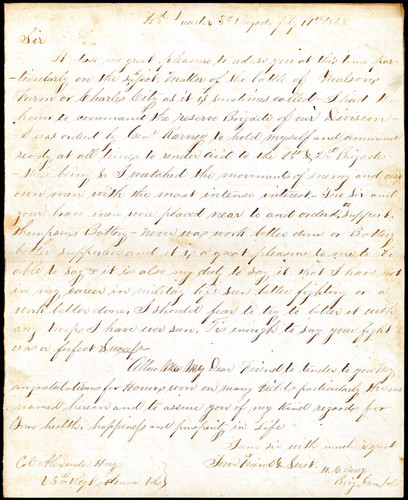 Hd Quarters 3d Brigade July 11th 1862
Sir
It gives me great pleasure to advise you at this time par-
-ticularly on the subject matter of the battle of Nealsons
Farm or Charles City as it is sometimes called, I had the
honor to command the reserve Brigade of our Division-
-I was ordered by Genl Karney to hold myself and command
ready at all times to render aid to the 1st & 2d Brigade-
-this being so I watched the movements of enemy and our
own men with the most intense interest- You Sir and
your brave men were placed near to and ordered to support
Thompsons Battery- never was work better done or Battery
better supported and it is a great pleasure to me to be
able to say & it is also my duty to say it that I have not
in my career in military life seen better fighting or a
work better done, I should fear to try to better it with
any troops I have ever seen, Tis enough to say your fight
was a perfect Success
Allow Me My Dear Friend to tender to you My
congratulations for honors won on many field particularly the one
named herein and to assure you of my Kind regards for
your health happiness and prosperity in Life
I am sir with much respect
Your friend & Servt.
Col Alexander Hay
63d Regt Penna Vols